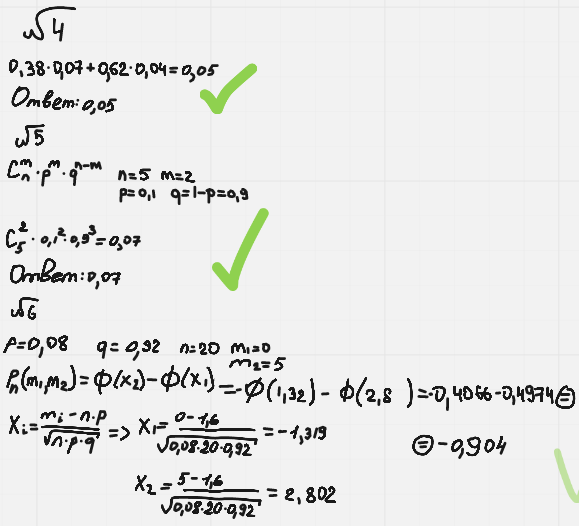 √4
0,38·0,07+0,62·0,04=0,05
Ответ: 0,05
√5
C_n^m · p^m · q^{n-m} n=5 m=2
p=0,1 q=1-p=0,9
C_5^2 · 0,1^2 · 0,9^3=0,07
Ответ: 0,07
√6
p=0,08 q=0,92 n=20 m_1=0
m_2=5
P_n(m_1,m_2)=Ф(x_2)-Ф(x_1)=-Ф(1,32)-Ф(2,8 )=-0,4066-0,4974⊜
X_i=\frac{m_i-n·p}{\sqrt{n·p·q}} => X_1=\frac{0-1,6}{\sqrt{0,08·20·0,92}}=-1,319
⊜-0,904
X_2=\frac{5-1,6}{\sqrt{0,08·20·0,92}}=2,802